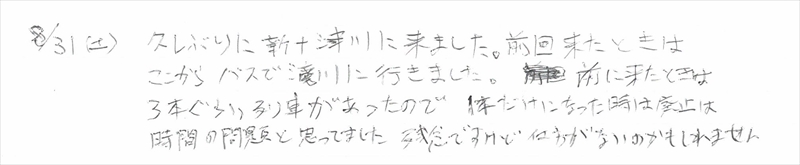 8/31(土) 久しぶりに新十津川に来ました。前回来たときは
ここから バスで滝川に行きました。 前に来たときは
3本ぐらい列車があったので 1本だけになった時は廃止は
時間の問題と思ってました 残念ですけど 仕方がないのかもしれません